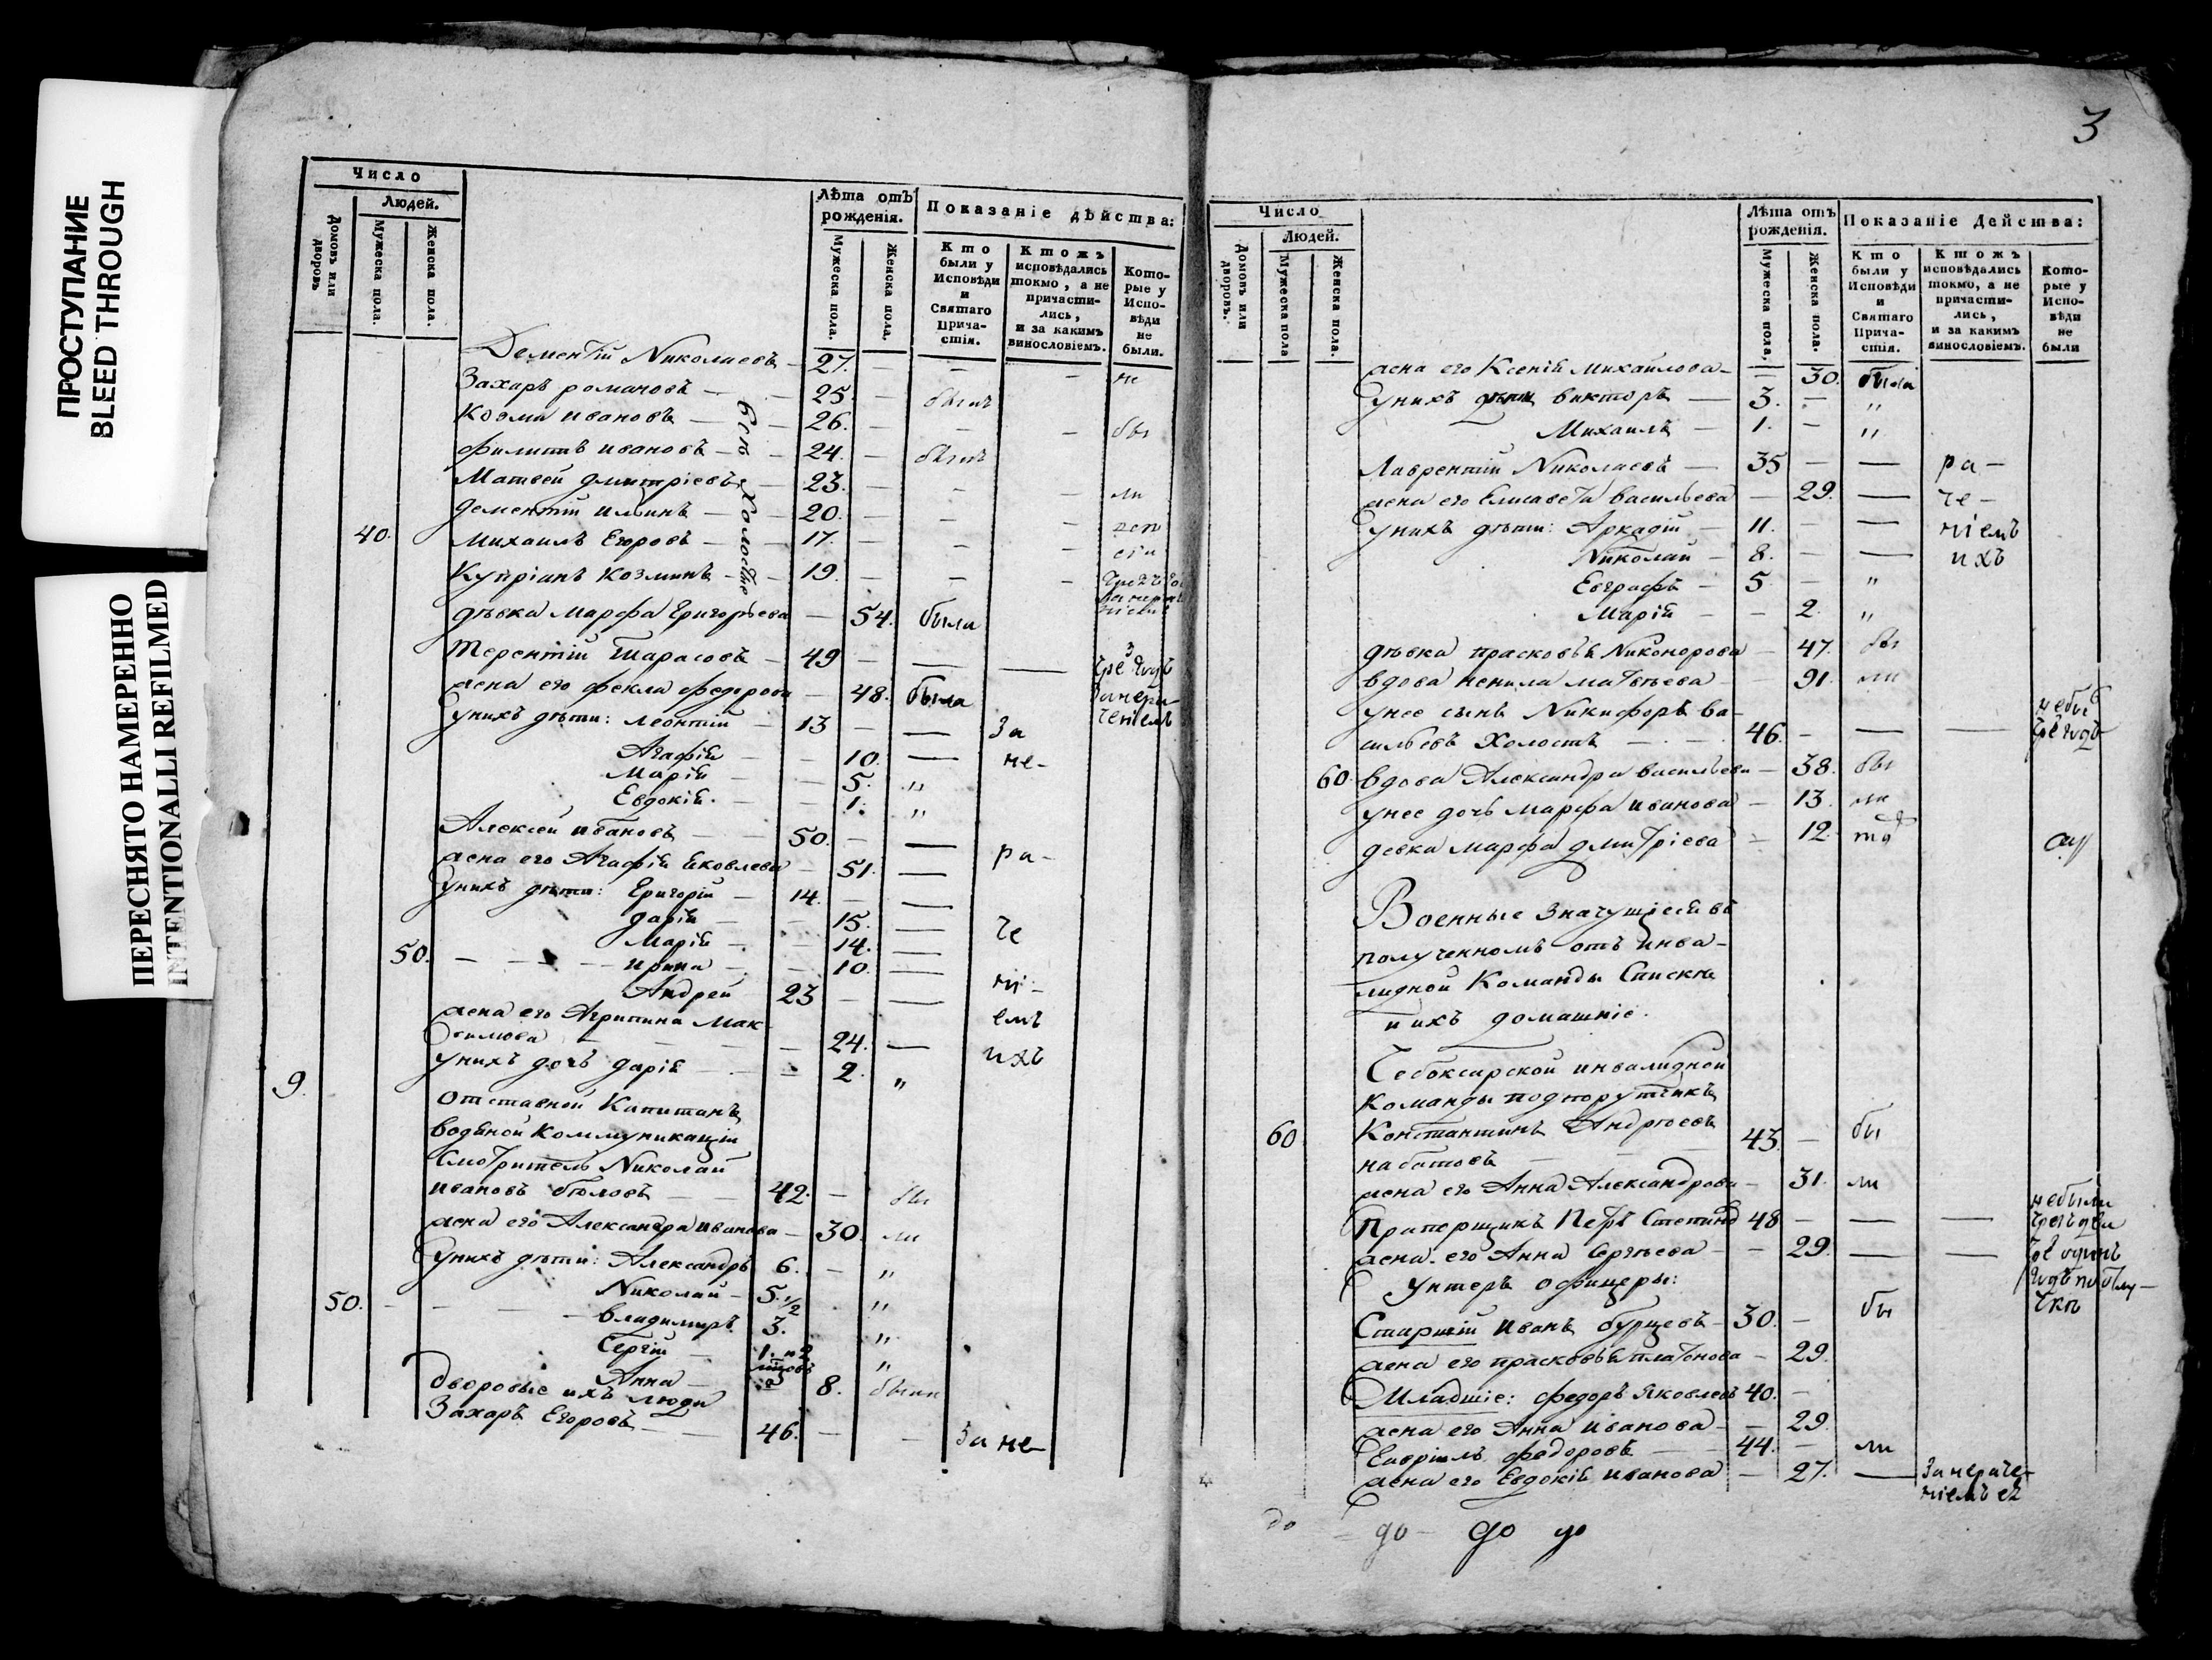 ПРОСТУПАНИЕ
BLEED THROUGH
ПЕРЕСНЯТО НАМЕРЕННО
INTENTIONALLI REFILMED
Число
Людей.
Домовъ или дворовъ
Мужеска пола.
Женска пола.
Лѣта отъ рожденія.
Мужеска пола.
Женска пола.
Показаніе дѣйства:
Кто были у Исповѣди и Святаго Причастія.
Ктожъ исповѣдались токмо, а не причастились, и за какимъ винословіемъ.
Которые у Исповѣди не были.
Дементій Николаевъ – 27. – – – не
Захаръ романовъ – 25. – былъ
Козма ивановъ – 26. – – – бы
филипъ ивановъ – 24. – былъ
Матвей дмитріевъ – 23. – – – ли
дементій ильинъ – 20. – – –
40. Михаилъ Егоровъ – 17. – – –
Купріанъ Козминъ – 19. – – –
всѣ холостые
дѣвка Марфа Григорьева – 54. была
Терентій Тарасовъ – 49 – – –
жена его фекла федорова – 48. была
унихъ дѣти: леонтій – 13 – – За
Агафія – – 10. – не-
Марія – – 5. „
Евдокія. – – 1. „
Алексей ивановъ – 50. – – ра-
жена его Агафія Яковлева – 51. –
унихъ дѣти: Григорій – 14. – –
дарія – – 15. – че
Марія – – 14. –
50. – – – ирина – – 10. – ні-
Андрей 23 – – емъ
жена его Агрипина Мак
симова – – – 24. – ихъ
унихъ дочь дарія – – 2. „
9. отставной Капитанъ
водяной Коммуникаціи
Смотритель Николай
ивановъ бѣловъ – – 42. – бы
жена его Александра иванова – 30. ли
унихъ дѣти: Александръ 6. – „
Николай – 5. 1/2 „
50. – – – владимиръ 3. „
Сергій –
Анна – 8. были
дворовые ихъ люди
Захаръ Егоровъ – – 46. – – Зане-
3
Число
Людей.
Домовъ или дворовъ.
Мужеска пола
Женска пола.
Лѣта отъ рожденія.
Мужеска пола,
Женска пола.
Показаніе Дейсшва:
Кто были у Исповѣди и Святаго Причастія.
Ктожъ исповѣдались токмо, а не причастились, и за какимъ винословіемъ.
Которые у Исповѣди не были
жена его Ксенія Михайлова – – 30. была
унихъ дѣти викторъ – 3. – „
Михаилъ – 1. – „
Лаврентій Николаевъ – 35 – – ра-
жена его Елисавета васильева – 29. – че-
унихъ дѣти: Аркадій – 11. – – ніемъ
Николай – 8. – – ихъ
Евграфъ – 5. – „
Марія – – 2. „
дѣвка прасковья Никонорова – 47. бы
вдова ненила матвѣева – 91. ли
унее сынъ Никифоръ ва-
сильевъ Холостъ – – 46. – – –
60. вдова Александра васильева – 38. бы
унее дочь марфа иванова – 13. ли
девка марфа дмитріева – 12.
Военные значущіеся въ
полученномъ отъ инва-
лидной Команды Списке
и ихъ домашніе.
Чебоксарской инвалидной
Команды подпорутчикъ
60 Константинъ Андреевъ
набатовъ – – – 43. – бы
жена его Анна Александрова – 31. ли
Прапорщикъ Петръ Степанов 48 – – – небыли
жена его Анна Сергѣева – – 29. – –
Унтеръ офицеры:
Старшій иванъ бурцевъ – 30. – бы
жена его прасковья платонова – 29.
Младшіе: федоръ Яковлевъ 40. –
жена его Анна иванова – – 29.
Гавріилъ федоровъ – – 44. – ли
жена его Евдокія иванова – 27. – Занераче-
ніемъ ея
до – до – до до